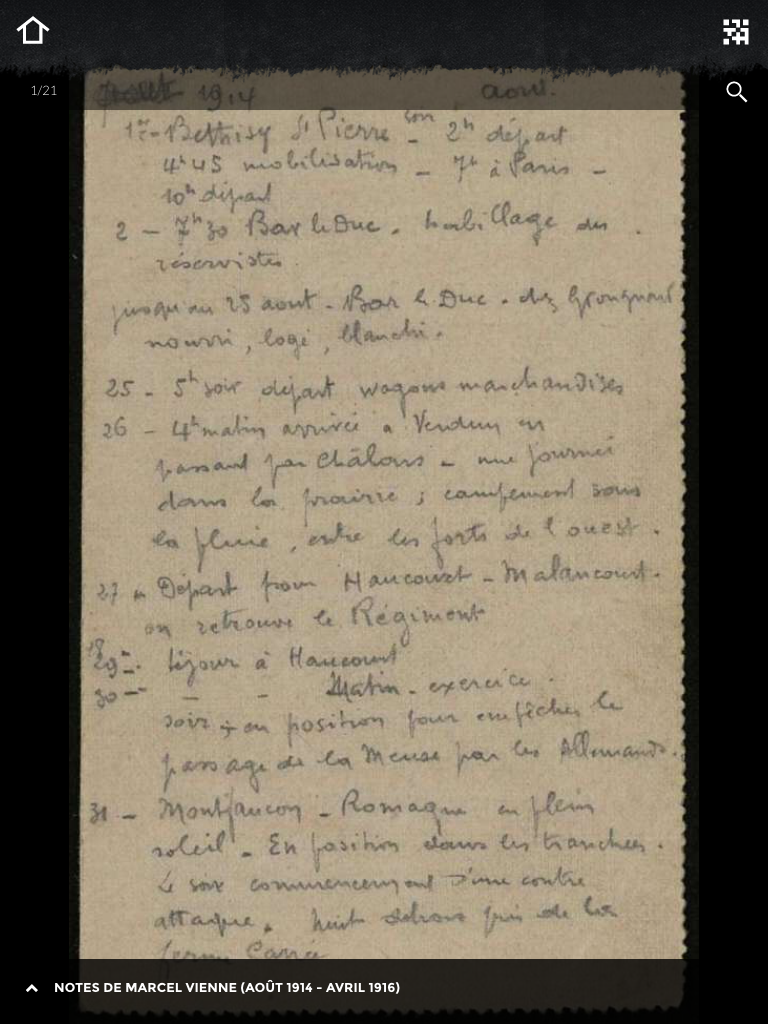 1/21
1914 août.
1er - Béthisy St Pierre - soir 2h départ
4h45 mobilisation - 7h à Paris -
10h départ
2 - 7h30 Bar le Duc. habillage des
réservistes
jusqu'au 25 aout - Bar le Duc. chez
nourri, logé, blanchi.
25 - 5h soir départ wagons marchandises
26 - 4h matin arrivée a Verdun en
passant par Châlons - une journée
dans la prairie ; campement sous
la pluie, entre les forts de l'ouest.
27 - Départ pour Haucourt - Malancourt.
on retrouve le Régiment
29 - Séjour à Haucourt
30 - - - Matin - exercice.
soir - en position pour empêcher le
passage de la Meuse par les Allemands.
31 - Montfaucon - Romagne en plein
soleil - En position dans les tranchées.
Le soir commencement d'une contre
attaque. Nuit dehors près de la
ferme Carré
NOTES DE MARCEL VIENNE (AOÛT 1914 - AVRIL 1916)